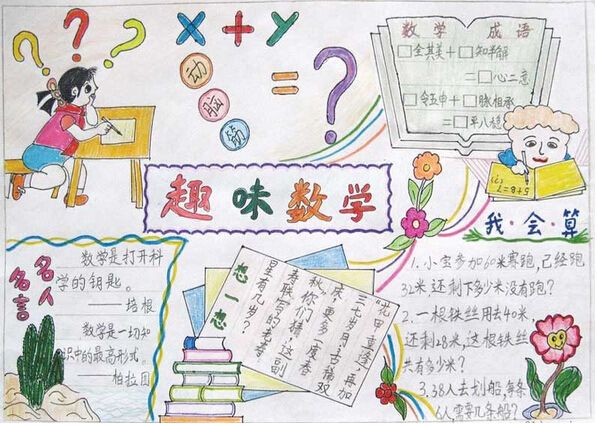 ? ? ?
x+y
=?
动
脑
筋
数学 成语
□全其美+□知半解
=□心二意
□令五申+□脉相承
=□平八稳
5+8=?
趣味数学
我·会·算
名人名言
数学是打开科
学的钥匙。
——培根
数学是一切知
识中的最高形式。
柏拉图
想一想
“花甲重逢,再加
三七岁月;古稀双
庆,更多一度春
秋。”你们猜,这副
寿联写的老寿
星有几岁?
1.小宝参加60米赛跑,已经跑
32米,还剩下多少米没有跑?
2.一根铁丝用去40米,
还剩28米,这根铁丝
共有多少米?
3.38人去划船,每条
6人,需要几条船?